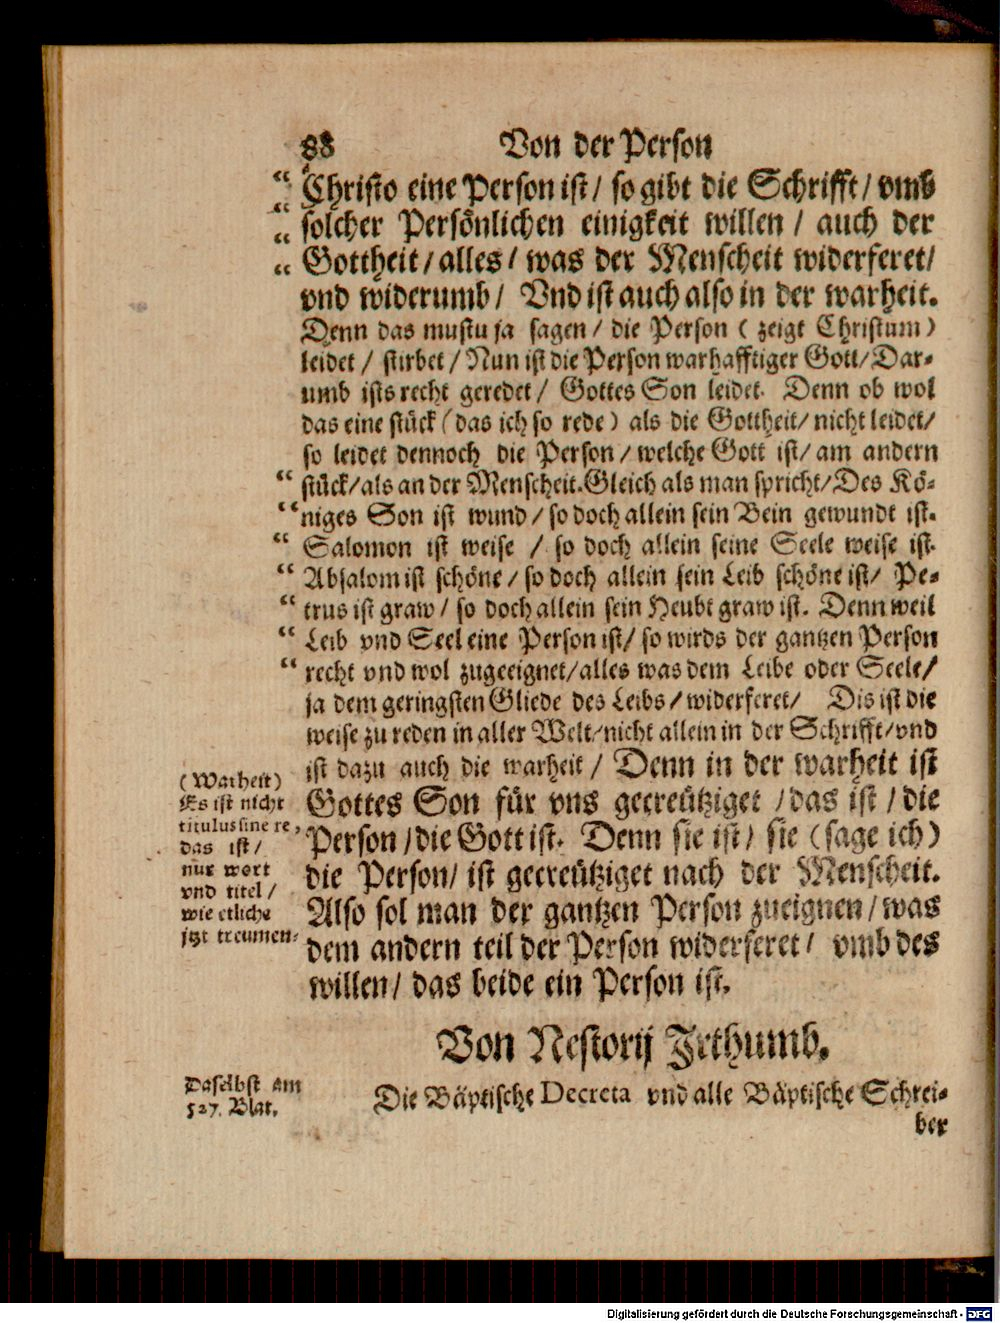 88 Von der Person
“ Christo eine Person ist / so gibt die Schrifft / vmb
“ solcher Persönlichen einigkeit willen / auch der
“ Gottheit / alles / was der Menscheit widerferet /
“ vnd widerumb / Vnd ist auch also in der warheit.
Denn das mustu ja sagen / die Person ( zeigt Christum )
leidet / stirbet / Nun ist die Person warhafftiger Gott / Dar-
umb ists recht geredet / Gottes Son leidet. Denn ob wol
das eine stück ( das ich so rede ) als die Gottheit / nicht leidet /
so leidet dennoch die Person / welche Gott ist / am andern
“ stück / als an der Menscheit. Gleich als man spricht / Des Kö-
“ niges Son ist wund / so doch allein sein Bein gewundt ist.
“ Salomon ist weise / so doch allein seine Seele weise ist.
“ Absalom ist schöne / so doch allein sein Leib schöne ist / Pe-
“ trus ist graw / so doch allein sein Heubt graw ist. Denn weil
“ Leib vnd Seel eine Person ist / so wirds der gantzen Person
“ recht vnd wol zugeeignet / alles was dem Leibe oder Seele /
ja dem geringsten Gliede des Leibs / widerferet / Dis ist die
weise zu reden in aller Welt / nicht allein in der Schrifft / vnd
ist dazu auch die warheit / Denn in der warheit ist
Gottes Son für vns gecreütziget / das ist / die
Person / die Gott ist. Denn sie ist / sie ( sage ich )
die Person / ist gecreütziget nach der Menscheit.
Also sol man der gantzen Person zueignen / was
dem andern teil der Person widerferet / vmb des
willen / das beide ein Person ist.
( Warheit )
Es ist nicht
titulus sine re,
das ist /
nur wort
vnd titel /
wie etliche
jtzt treumen.
Von Nestorij Irthumb.
Daselbst am
527. Blat.
Die Bäptische Decreta vnd alle Bäptische Schrei-
ber
Digitalisierung gefördert durch die Deutsche Forschungsgemeinschaft - DFG